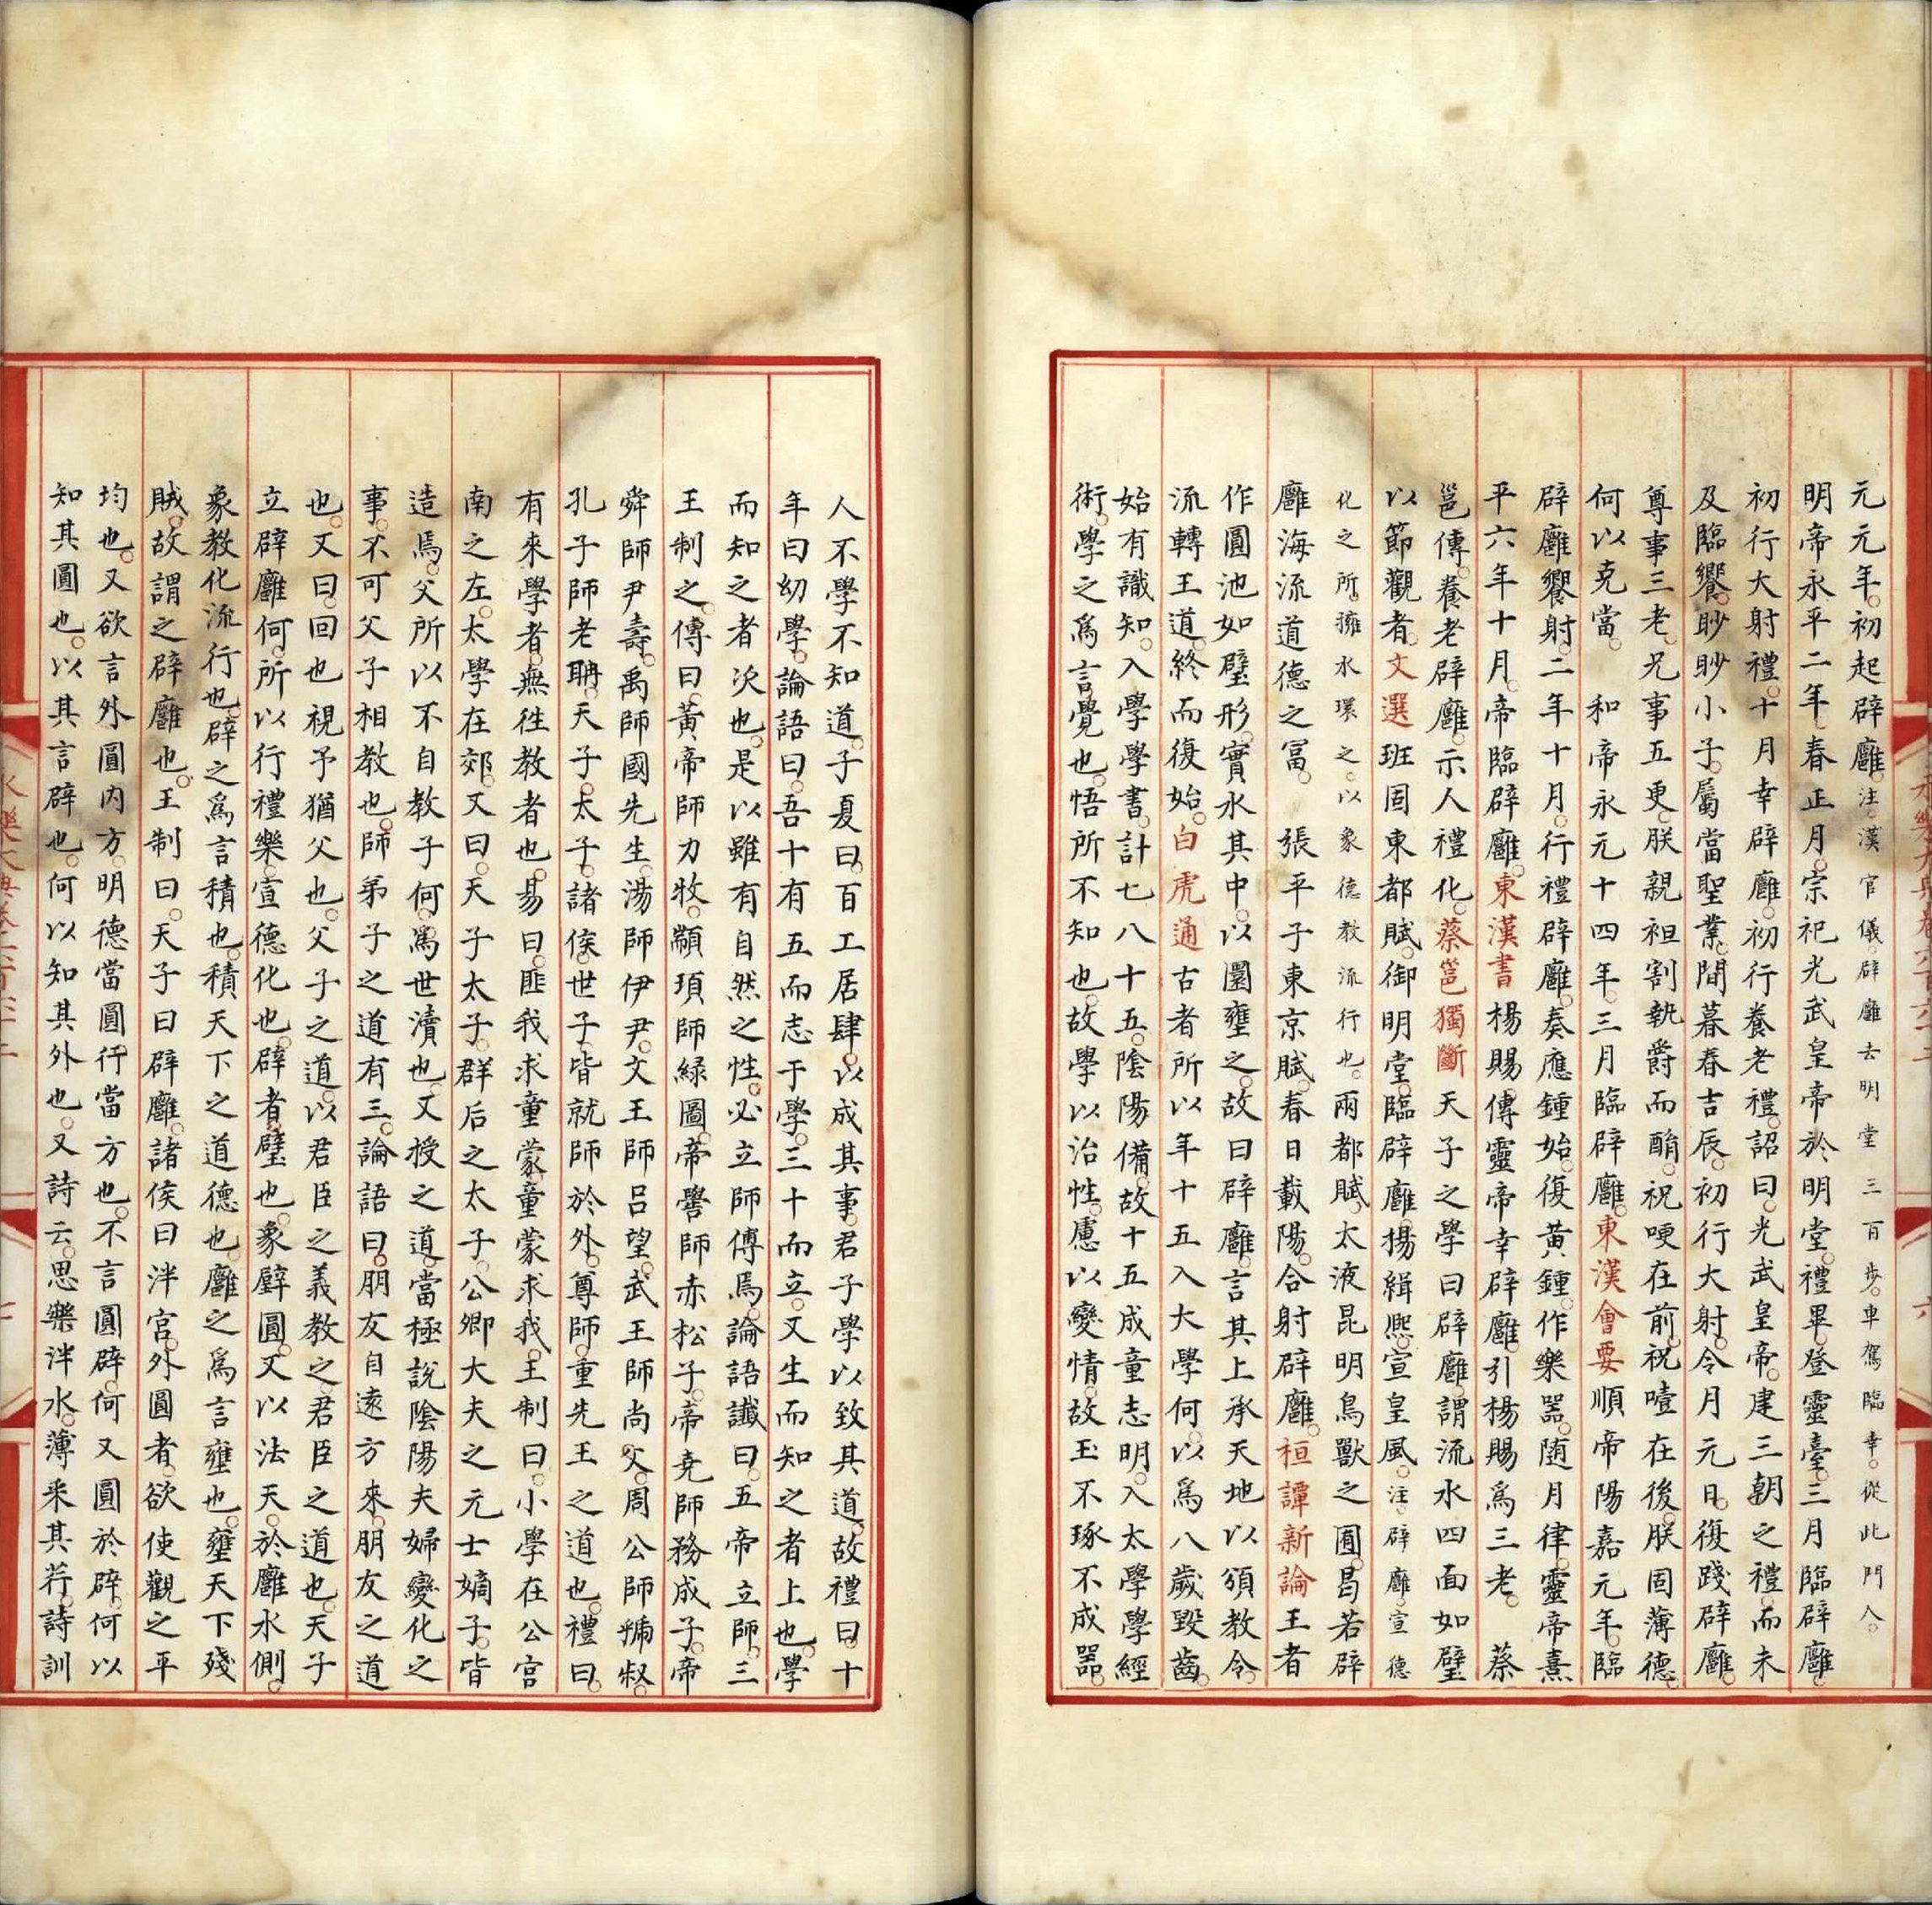 元元年初起辟廱注漢官儀辟廱去明堂三百步車駕臨幸從此門入
明帝永平二年春正月宗祀光武皇帝於明堂禮畢登靈臺三月臨辟廱
初行大射禮十月幸辟廱初行養老禮詔曰光武皇帝建三朝之禮而未
及臨饗眇眇小子屬當聖業間暮春吉辰初行大射令月元日復踐辟廱
尊事三老兄事五更朕親袒割執爵而酳祝哽在前祝噎在後朕固薄德
何以克當 和帝永元十四年三月臨辟廱東漢會要順帝陽嘉元年臨
辟廱饗射二年十月行禮辟廱奏應鍾始復黃鍾作樂器随月律靈帝熹
平六年十月帝臨辟廱東漢書楊賜傳靈帝幸辟廱引楊賜爲三老 蔡
邕傳養老辟廱示人禮化蔡邕獨斷天子之學曰辟廱謂流水四面如璧
以節觀者文選班固東都賦御明堂臨辟廱揚緝熈宣皇風注辟廱宣德
化之所擁水環之以象德教流行也兩都賦太液昆明鳥獸之囿曷若辟
廱海流道德之冨 張平子東京賦春日載陽合射辟廱桓譚新論王者
作圓池如璧形實水其中以圜壅之故曰辟廱言其上承天地以頒教令
流轉王道終而復始白虎通古者所以年十五入大學何以爲八歲毀齒
始有識知入學學書計七八十五陰陽備故十五成童志明入太學學經
術學之爲言覺也悟所不知也故學以治性慮以變情故玉不琢不成器
人不學不知道子夏曰百工居肆以成其事君子學以致其道故禮曰十
年曰幼學論語曰吾十有五而志于學三十而立又生而知之者上也學
而知之者次也是以雖有自然之性必立師傅焉論語讖曰五帝立師三
王制之傳曰黃帝師力牧顓頊師緑圖帝嚳師赤松子帝尭師務成子帝
舜師尹壽禹師國先生湯師伊尹文王師吕望武王師尚父周公師虢叔
孔子師老聃天子太子諸侯世子皆就師於外尊師重先王之道也禮曰
有來學者無徃教者也易曰匪我求童蒙童蒙求我王制曰小學在公宫
南之左太學在郊又曰天子太子群后之太子公卿大夫之元士嫡子皆
造焉父所以不自教子何爲世瀆也又授之道當極說隂陽夫婦變化之
事不可父子相教也師弟子之道有三論語曰朋友自逺方來朋友之道
也又曰回也視予猶父也父子之道以君臣之義教之君臣之道也天子
立辟廱何所以行禮樂宣德化也辟者璧也象璧圓又以法天於廱水側
象教化流行也辟之爲言積也積天下之道德也廱之爲言壅也壅天下殘
賊故謂之辟廱也王制曰天子曰辟廱諸侯曰泮宫外圓者欲使觀之平
均也又欲言外圓内方明德當圓行當方也不言圓辟何又圓於辟何以
知其圓也以其言辟也何以知其外也又詩云思樂泮水薄采其芹詩訓